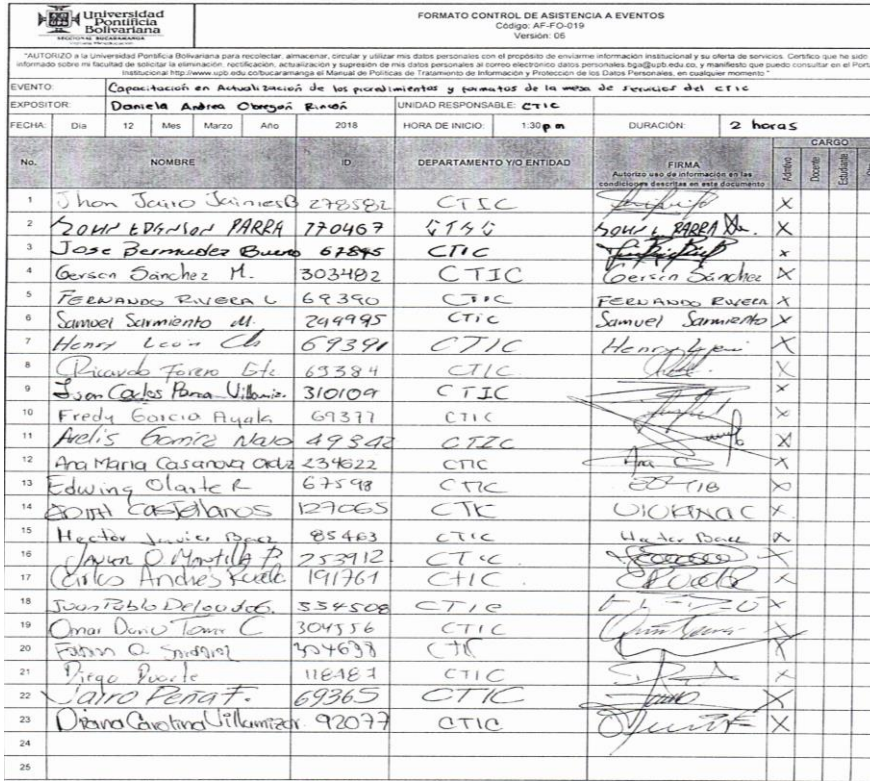 Universidad
Pontificia
Bolivariana
SECCIONAL BUCARAMANGA
FORMATO CONTROL DE ASISTENCIA A EVENTOS
Código: AF-FO-019
Versión: 05
"AUTORIZO a la Universidad Pontificia Bolivariana para recolectar, almacenar, circular y utilizar mis datos personales con el propósito de enviarme información institucional y su oferta de servicios. Certifico que he sido
informado sobre mi facultad de solicitar la eliminación, rectificación, actualización y supresión de mis datos personales al correo electrónico datos.personales.bga@upb.edu.co, y manifiesto que puedo consultar en el Port
Institucional http://www.upb.edu.co/bucaramanga el Manual de Políticas de Tratamiento de Información y Protección de los Datos Personales, en cualquier momento."
EVENTO: Capacitación en Actualización de los procedimientos y formatos de la mesa de servicios del CTIC
EXPOSITOR: Daniela Andrea Obregón Rincón UNIDAD RESPONSABLE: CTIC
FECHA: Dia 12 Mes Marzo Año 2018 HORA DE INICIO: 1:30 pm DURACIÓN: 2 horas
CARGO
No. NOMBRE ID DEPARTAMENTO Y/O ENTIDAD FIRMA Admtivo Docente Estudiante
Autorizo uso de información en las
condiciones descritas en este documento
1 Jhon Jairo 278582 CTIC X
2 PARRA 170467 PARRA X
3 Jose Bermudez Bueno 67845 CTIC x
4 Gerson Sánchez M. 303482 CTIC Gerson Sánchez X
5 FERNANDO RIVERA C 69390 CTIC FERNANDO RIVERA X
6 Samuel Sarmiento M. 244995 CTiC Samuel Sarmiento X
7 Henry León 69391 CTIC Henry X
8 Ricardo Forero 69384 CTIC X
9 Juan Carlos Parra 310109 CTIC X
10 Fredy Garcia Ayala 69377 CTIC X
11 49342 CTIC X
12 Ana Maria Casanova 234622 CTIC Ana C X
13 Edwing Olarte R 67598 CTIC X
14 Castellanos 127065 CTIC X
15 Hector Javier Baez 85463 CTIC Hector Baez X
16 Javier O Mantilla P 253912 CTIC X
17 Carlos Andrés 191761 CTIC X
18 Juan Pablo Delgado G. CTIC X
19 Omar Dario C CTIC X
20 Fabian X
21 Diego Duarte CTIC X
22 Jairo Peña F. 69365 CTIC X
23 Diana Carolina Villamizar 92077 CTIC X
24
25